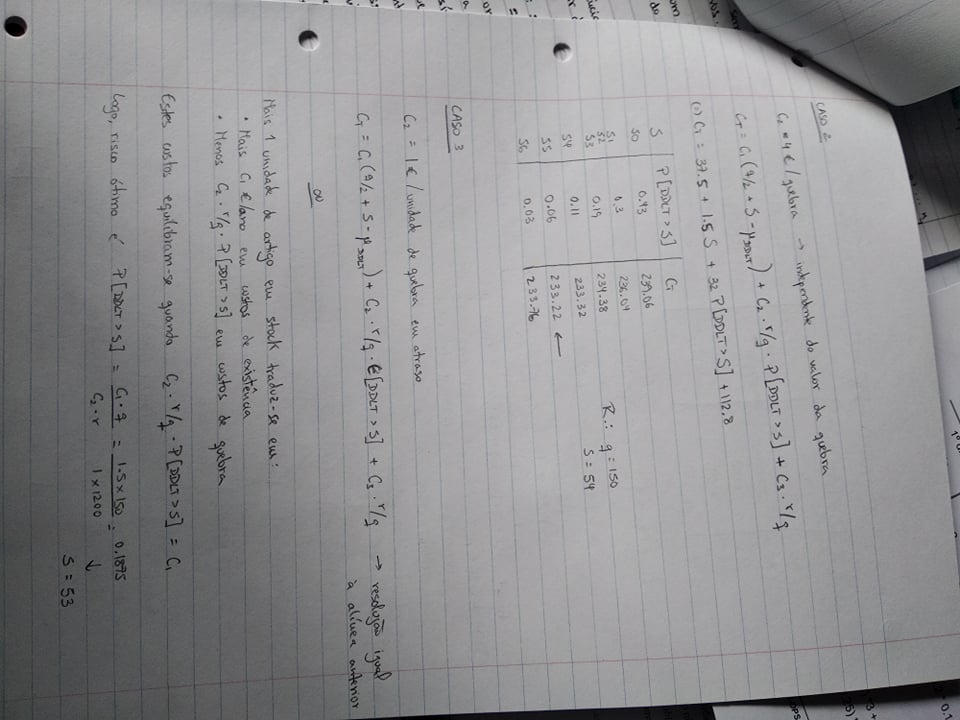 CASO 2
C₂ = 4 € / quebra → independente do valor da quebra
C_T = C₁ (q/2 + S - μ_DDLT) + C₂ · r/q · P[DDLT > S] + C₃ · r/q
(=) C_T = 37.5 + 1.5 S + 32 P[DDLT > S] + 112.8
S | P[DDLT > S] | C_T
50 | 0.43 | 239.06
51 | 0.3 | 236.04
52
53 | 0.19 | 234.38
54 | 0.11 | 233.32
55 | 0.06 | 233.22 ←
56 | 0.03 | 233.76
R.: q = 150
S = 54
CASO 3
C₂ = 1 € / unidade de quebra em atraso
C_T = C₁ (q/2 + S - μ_DDLT) + C₂ · r/q · E[DDLT > S] + C₃ · r/q → resolução igual
à alínea anterior
ou
Mais 1 unidade de artigo em stock traduz-se em:
• Mais C₁ €/ano em custos de existência
• Menos C₂ · r/q · P[DDLT > S] em custos de quebra
Estes custos equilibram-se quando C₂ · r/q · P[DDLT > S] = C₁
Logo, risco ótimo é P[DDLT > S] = C₁ · q / C₂ · r = 1.5 × 150 / 1 × 1200 = 0.1875
↓
S = 53